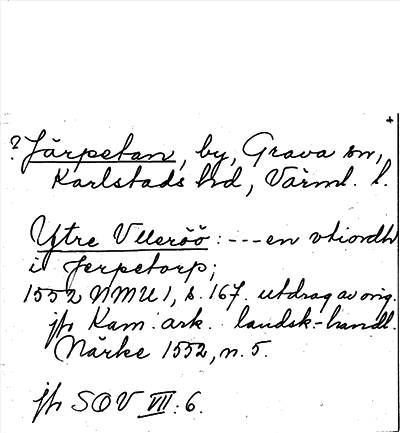 +
? Järpetan, by, Grava sn,
Karlstads hd, Värml. l.
Ytre Ulleröö: --- en vtiordh
i Jerpetorp;
1552 NMU 1, s. 167. utdrag av orig.
jfr Kam. ark. landsk.-handl.
Närke 1552, n. 5.
jfr SOV VII: 6.